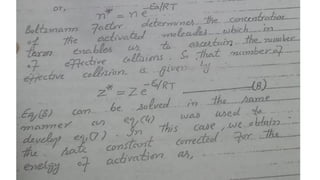 or, n* = n e^-Ea/RT
Boltzmann factor determines the concentration
of the activated molecules which in
term enables us to ascertain the number
of effective collisions. So that number of
effective collision is given by
Z* = Z e^-Ea/RT —— (8)
Eq.(8) can be solved in the same
manner as eq.(4) was used to
develop eq.(7). In this case, we obtain
the rate constant corrected for the
energy of activation as,